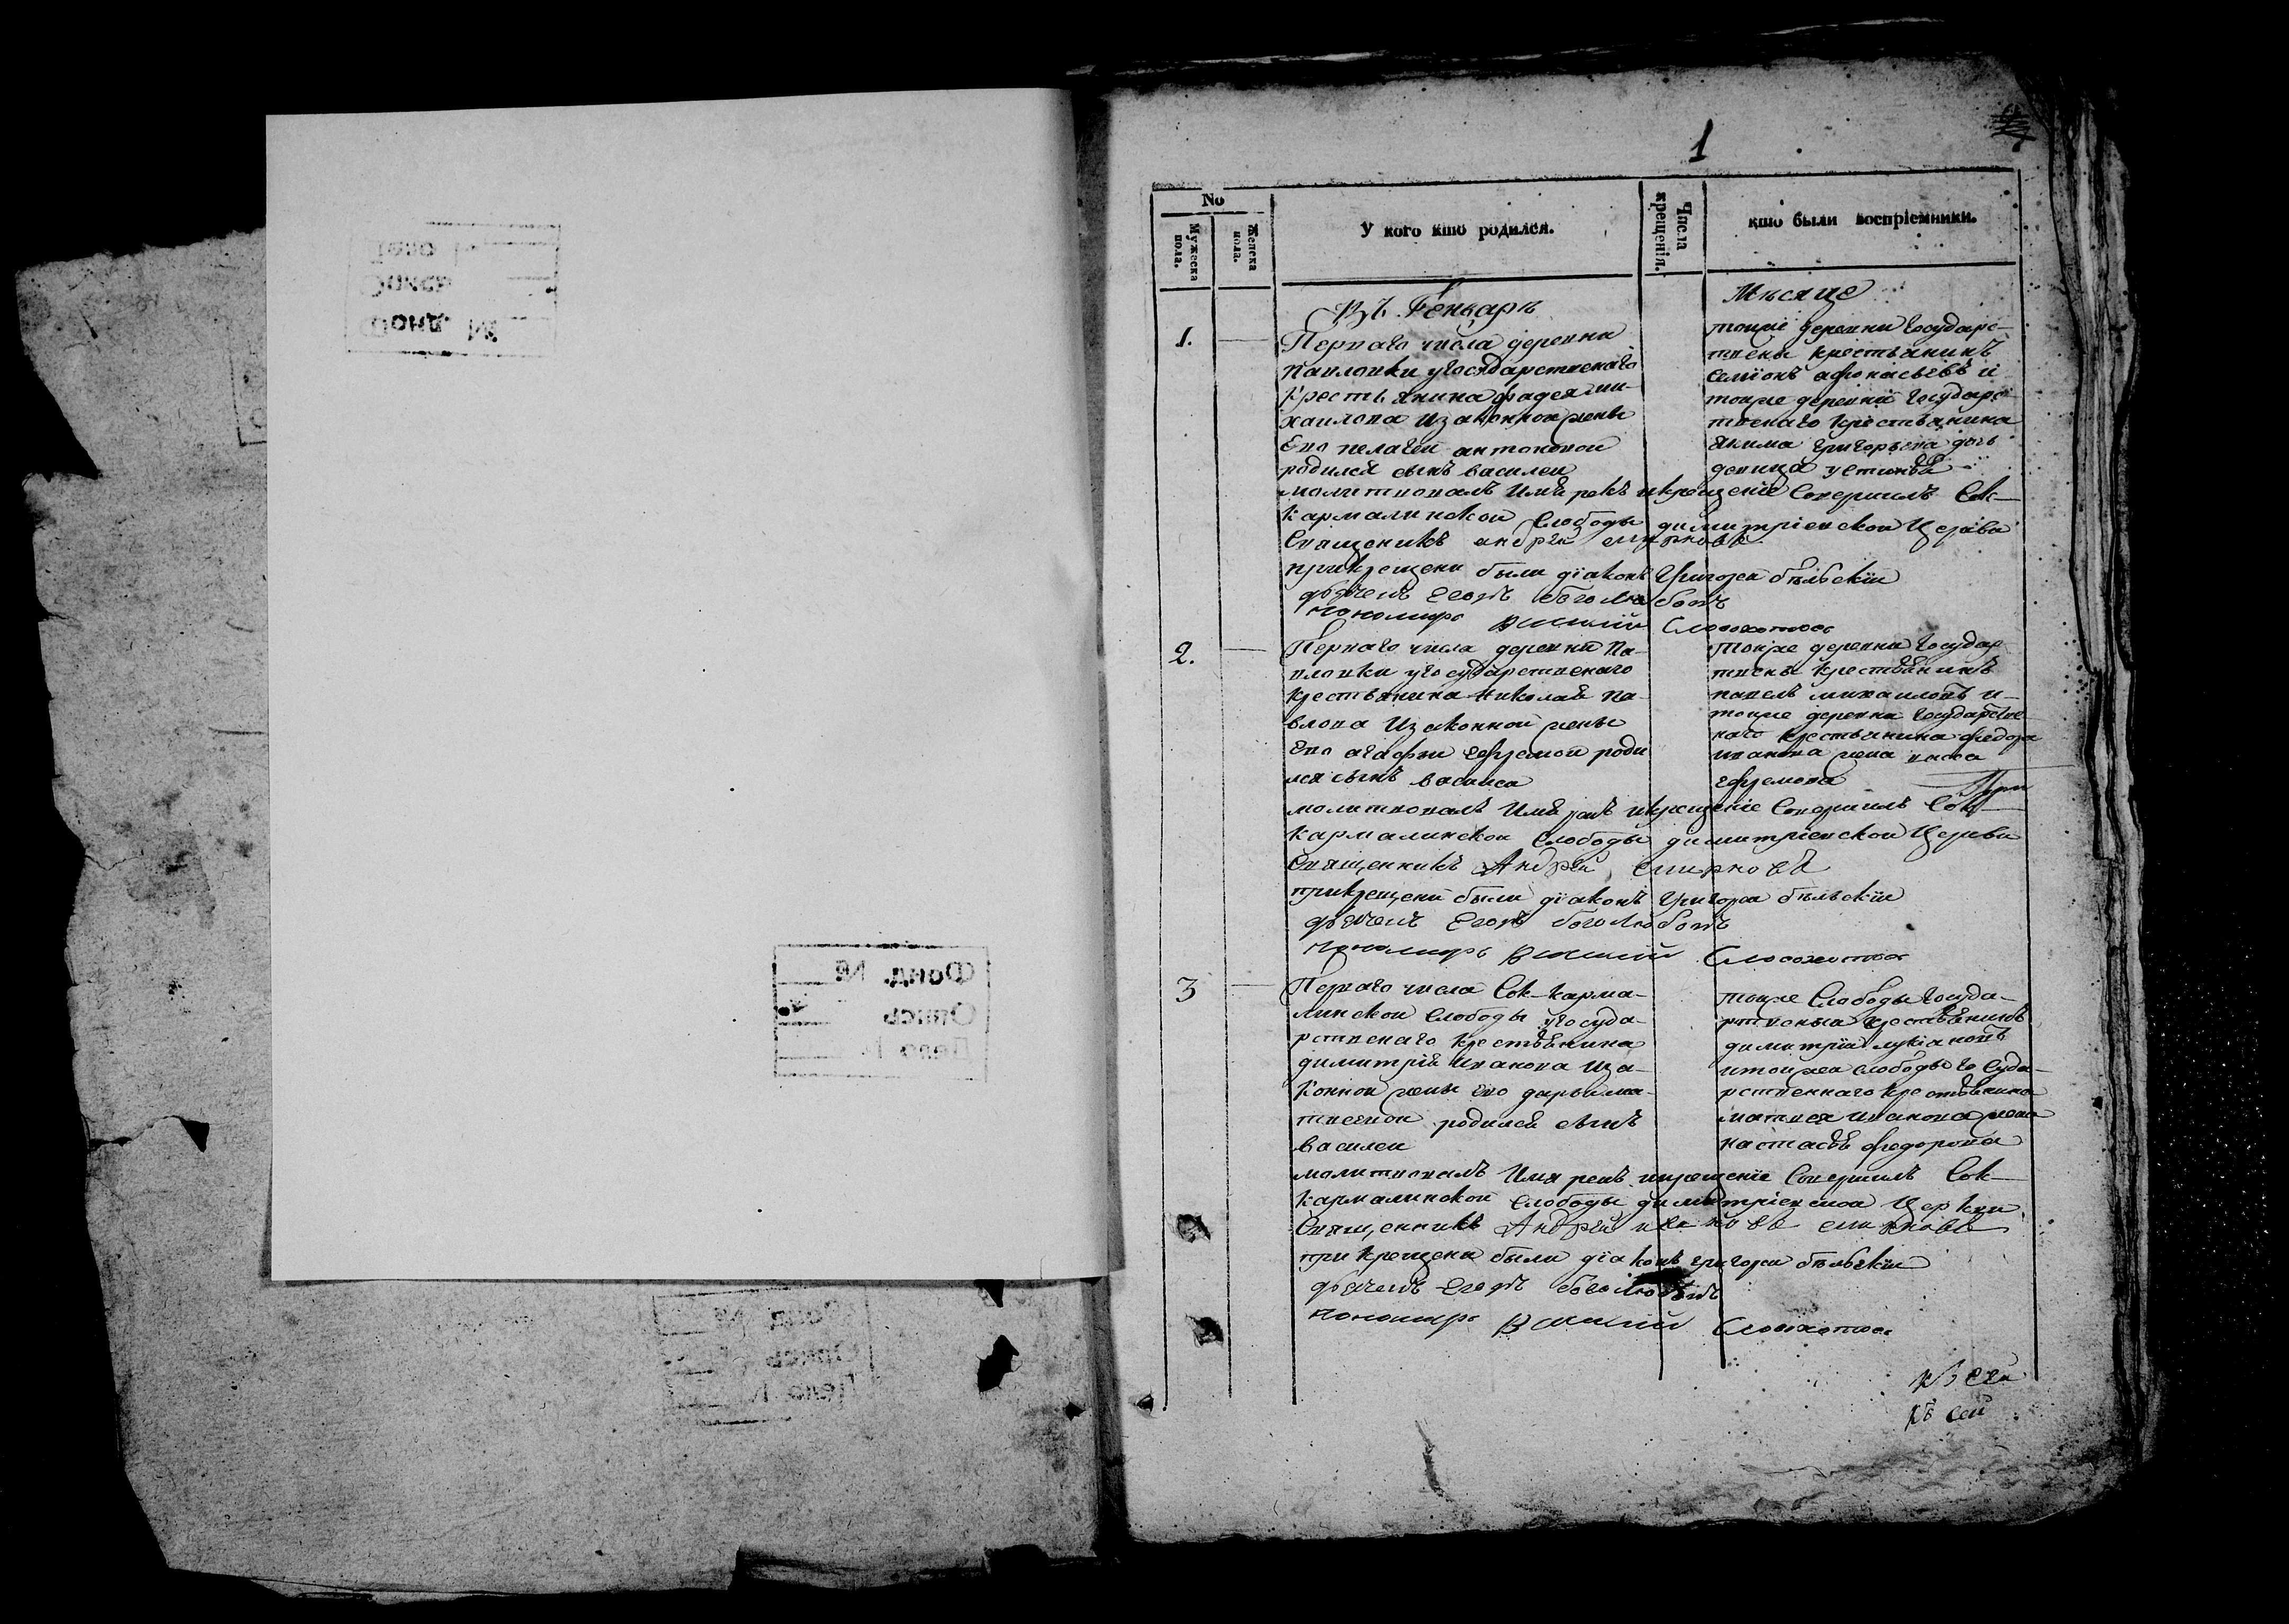 1
No
Мужеска пола.
Женска пола.
У кого кто родился.
Числа крещенія.
кто были воспріемники.
Въ Генварѣ
Мѣсяце
1.
Перваго числа деревни
Павловки у государственаго
Крестьянина фадея ми-
хаилова Из законной жены
Его пелагеи антоновой
родился сынъ василеи
тоиже деревни Государс-
твены крестьянинъ
Семіонъ афонасьевъ и
тоиже деревни Государс-
твенаго Крестьянина
Якима Григорьева дочь
девица устинья
молитвовалъ Имя рекъ и крещеніе Совершилъ Сок-
Кармалинской Слободы димитріевской Церкви
Священникъ андрей смирновъ
При крещени были діаконъ Григореи бѣльскіи
дьячекъ Егоръ боголюбовъ
пономарь Василий
2.
Перваго числа деревни Па-
вловки у государственаго
Крестьянина Николая Па-
влова Из законной жены
Его агафии Ефремои роди
лся сынъ василеи
Тоиже деревни Государ
твены Крестьянинъ
павелъ михаиловъ и-
тоиже деревни Государстве
наго Крестьянина Федора
иванова жена
ефремова
При
молитвовалъ Имя рекъ и крещеніе Совершилъ Сок-
Кармалинскои Слободы димитріевскои Церкви
Священникъ Андрей смирновъ
при крещени были діаконъ Григореи бѣльскіи
дьячекъ Егоръ боголюбовъ
пономарь Василий
3
Перваго числа Сок-Карма-
линскои Слободы у госуда-
рственаго Крестьянина
димитрія Иванова Из за-
Коннои жены Его дарьи ма-
твеевои родился сынъ
василеи
тоиже Слободы Госуда-
рственыи крестьянинъ
димитріи лукіановъ
и тоижеи слободы Госуда-
рственнаго Крестьянина
матвея иванова жена
настасья федорова
молитвовалъ Имя рекъ и крещеніе Совершилъ Сок-
Кармалинскои Слободы димитріевскои Церкви
Священникъ Андрей ивановъ смирновъ
при крещени были діаконъ григореи бѣльскіи
дьячекъ Егоръ боголюбовъ
пономарь Василий
къ сей
къ сей
Фонд №
Опись
Дело №
Фонд №
Опись
Дело №
Фонд №
Опись
Дело №